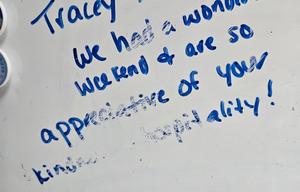 Tracey
We had a wonderful
weekend & are so
appreciative of your
hospitality!